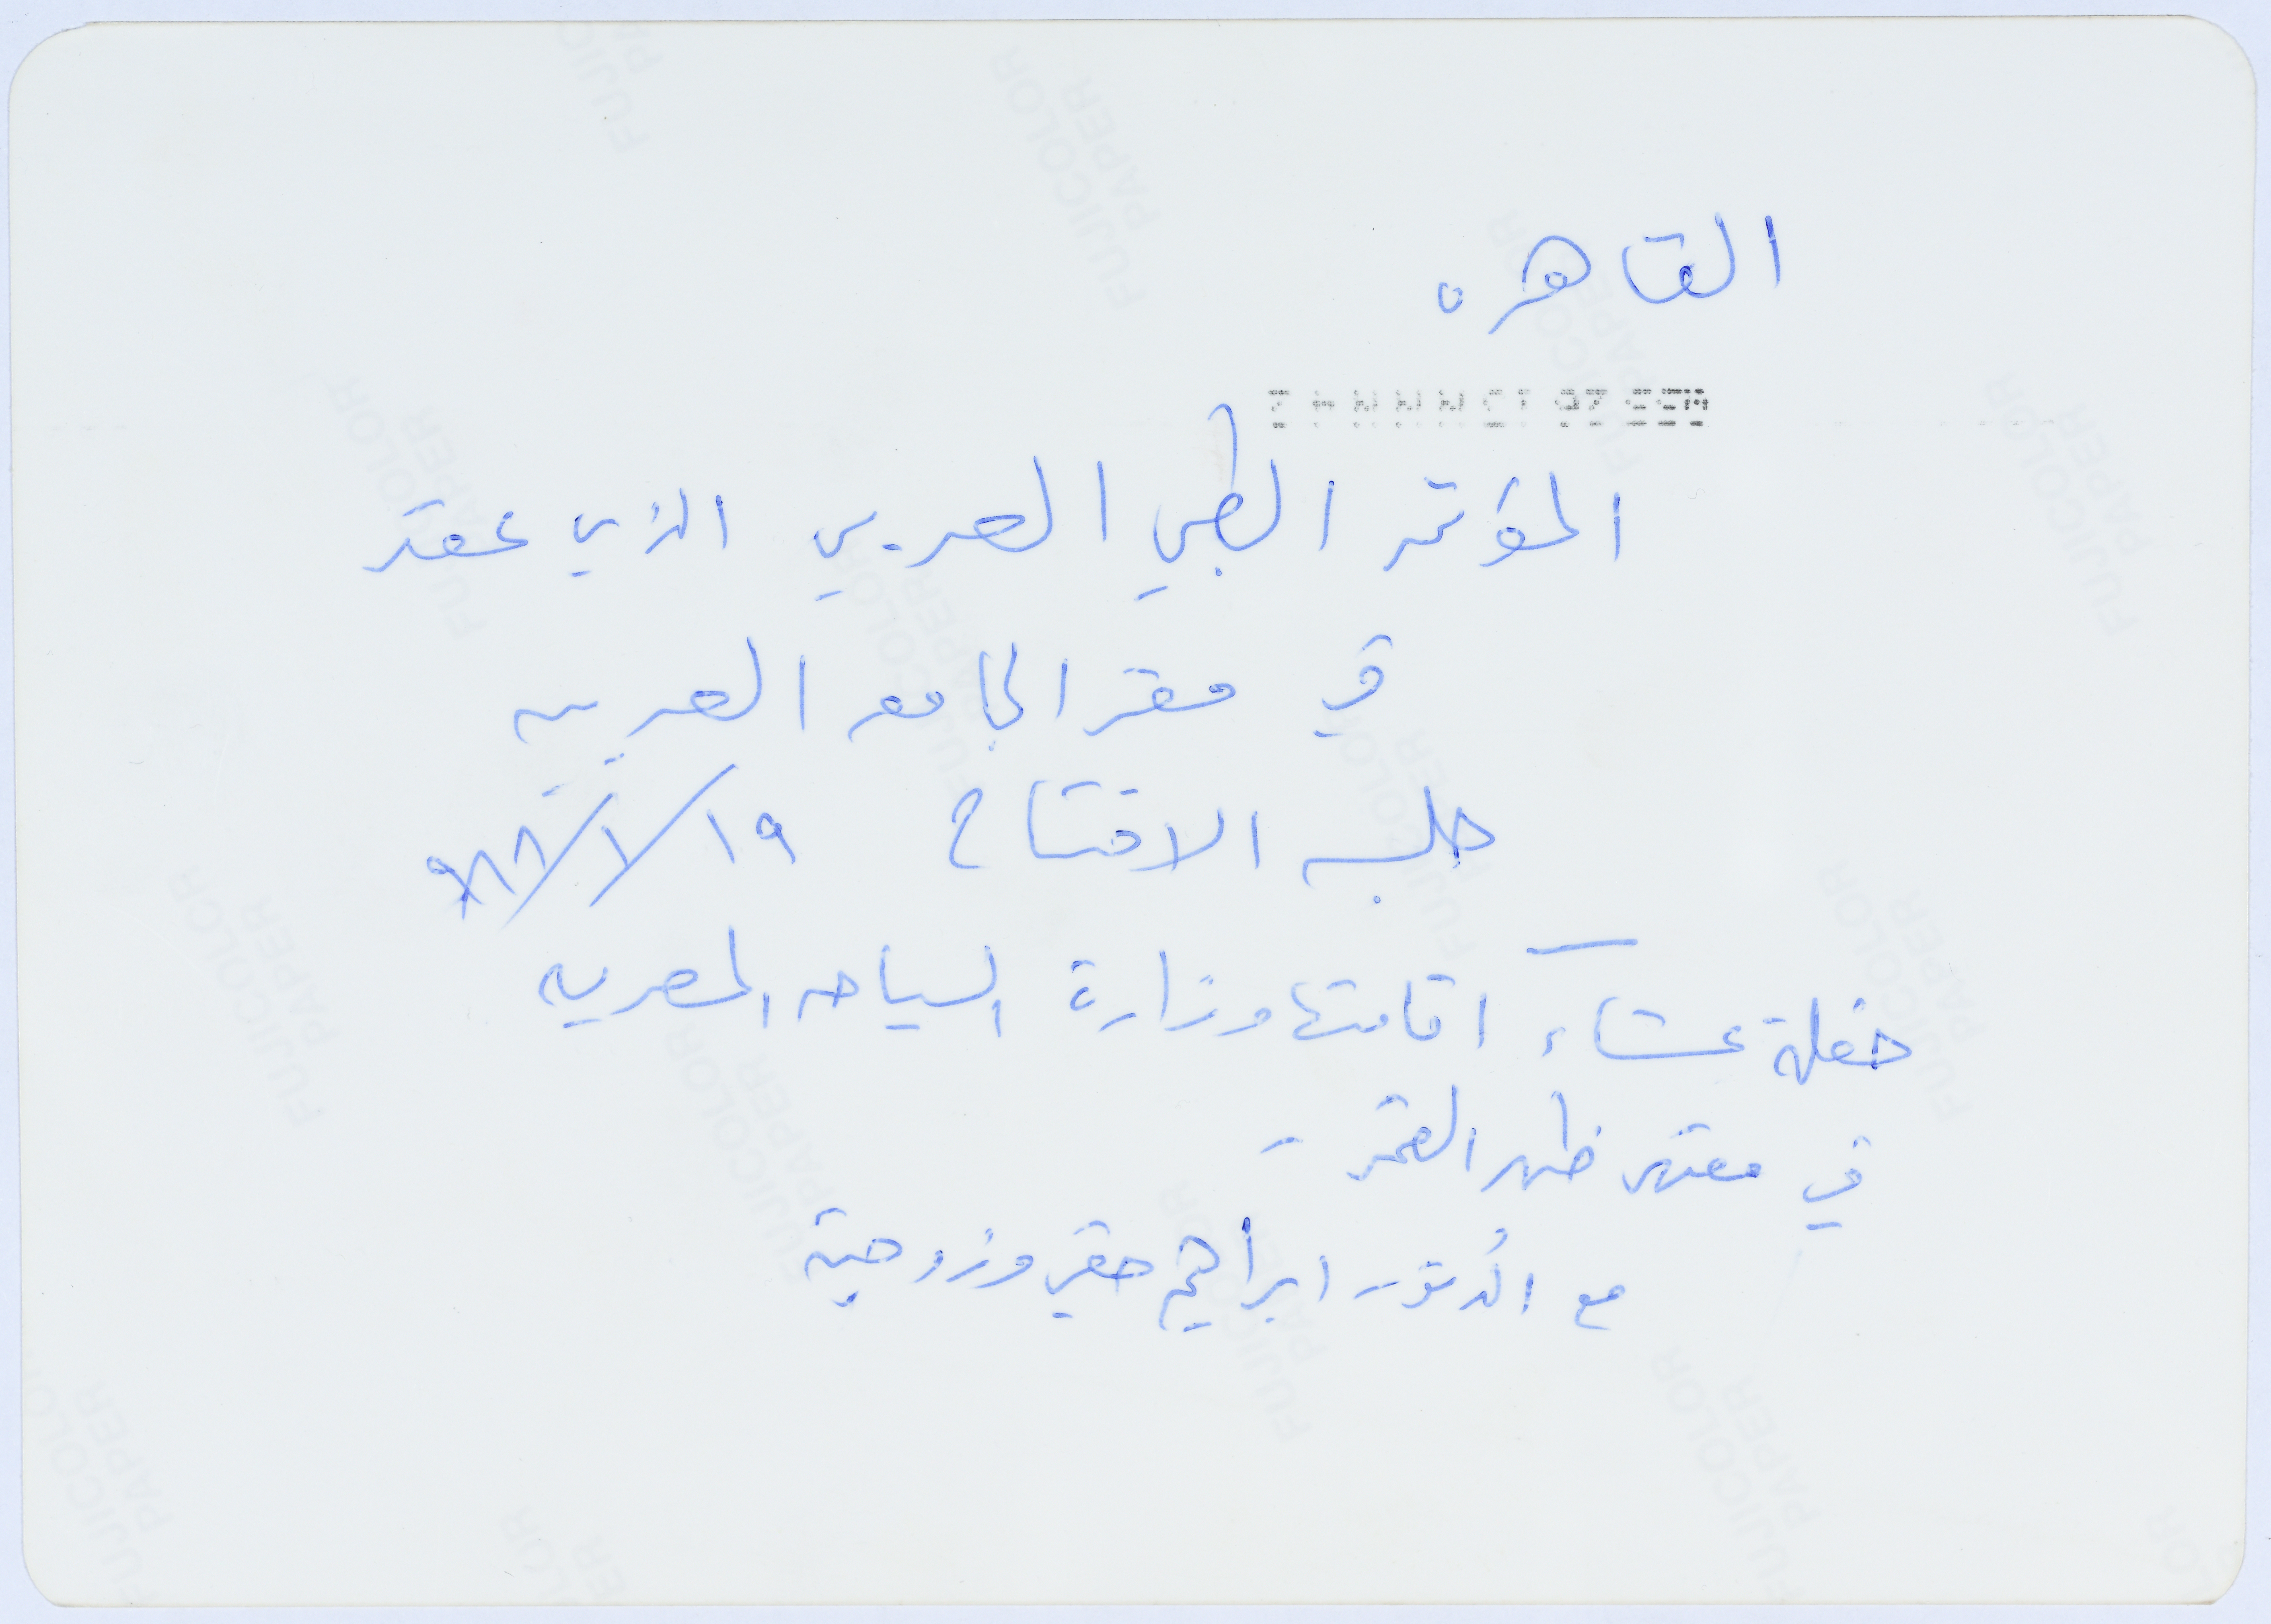 القاهره
المؤتمر الطبي العربي الذي عقد
في مقر الجامعه العربيه
جلسه الافتتاح ١٩/١/٩٨٨
حفلة عشاء اقامتها وزارة السياحه المصريه
في مقهى ظهر القمر -
مع الدكتور ابراهيم حقي وزوجته
FUJICOLOR PAPER